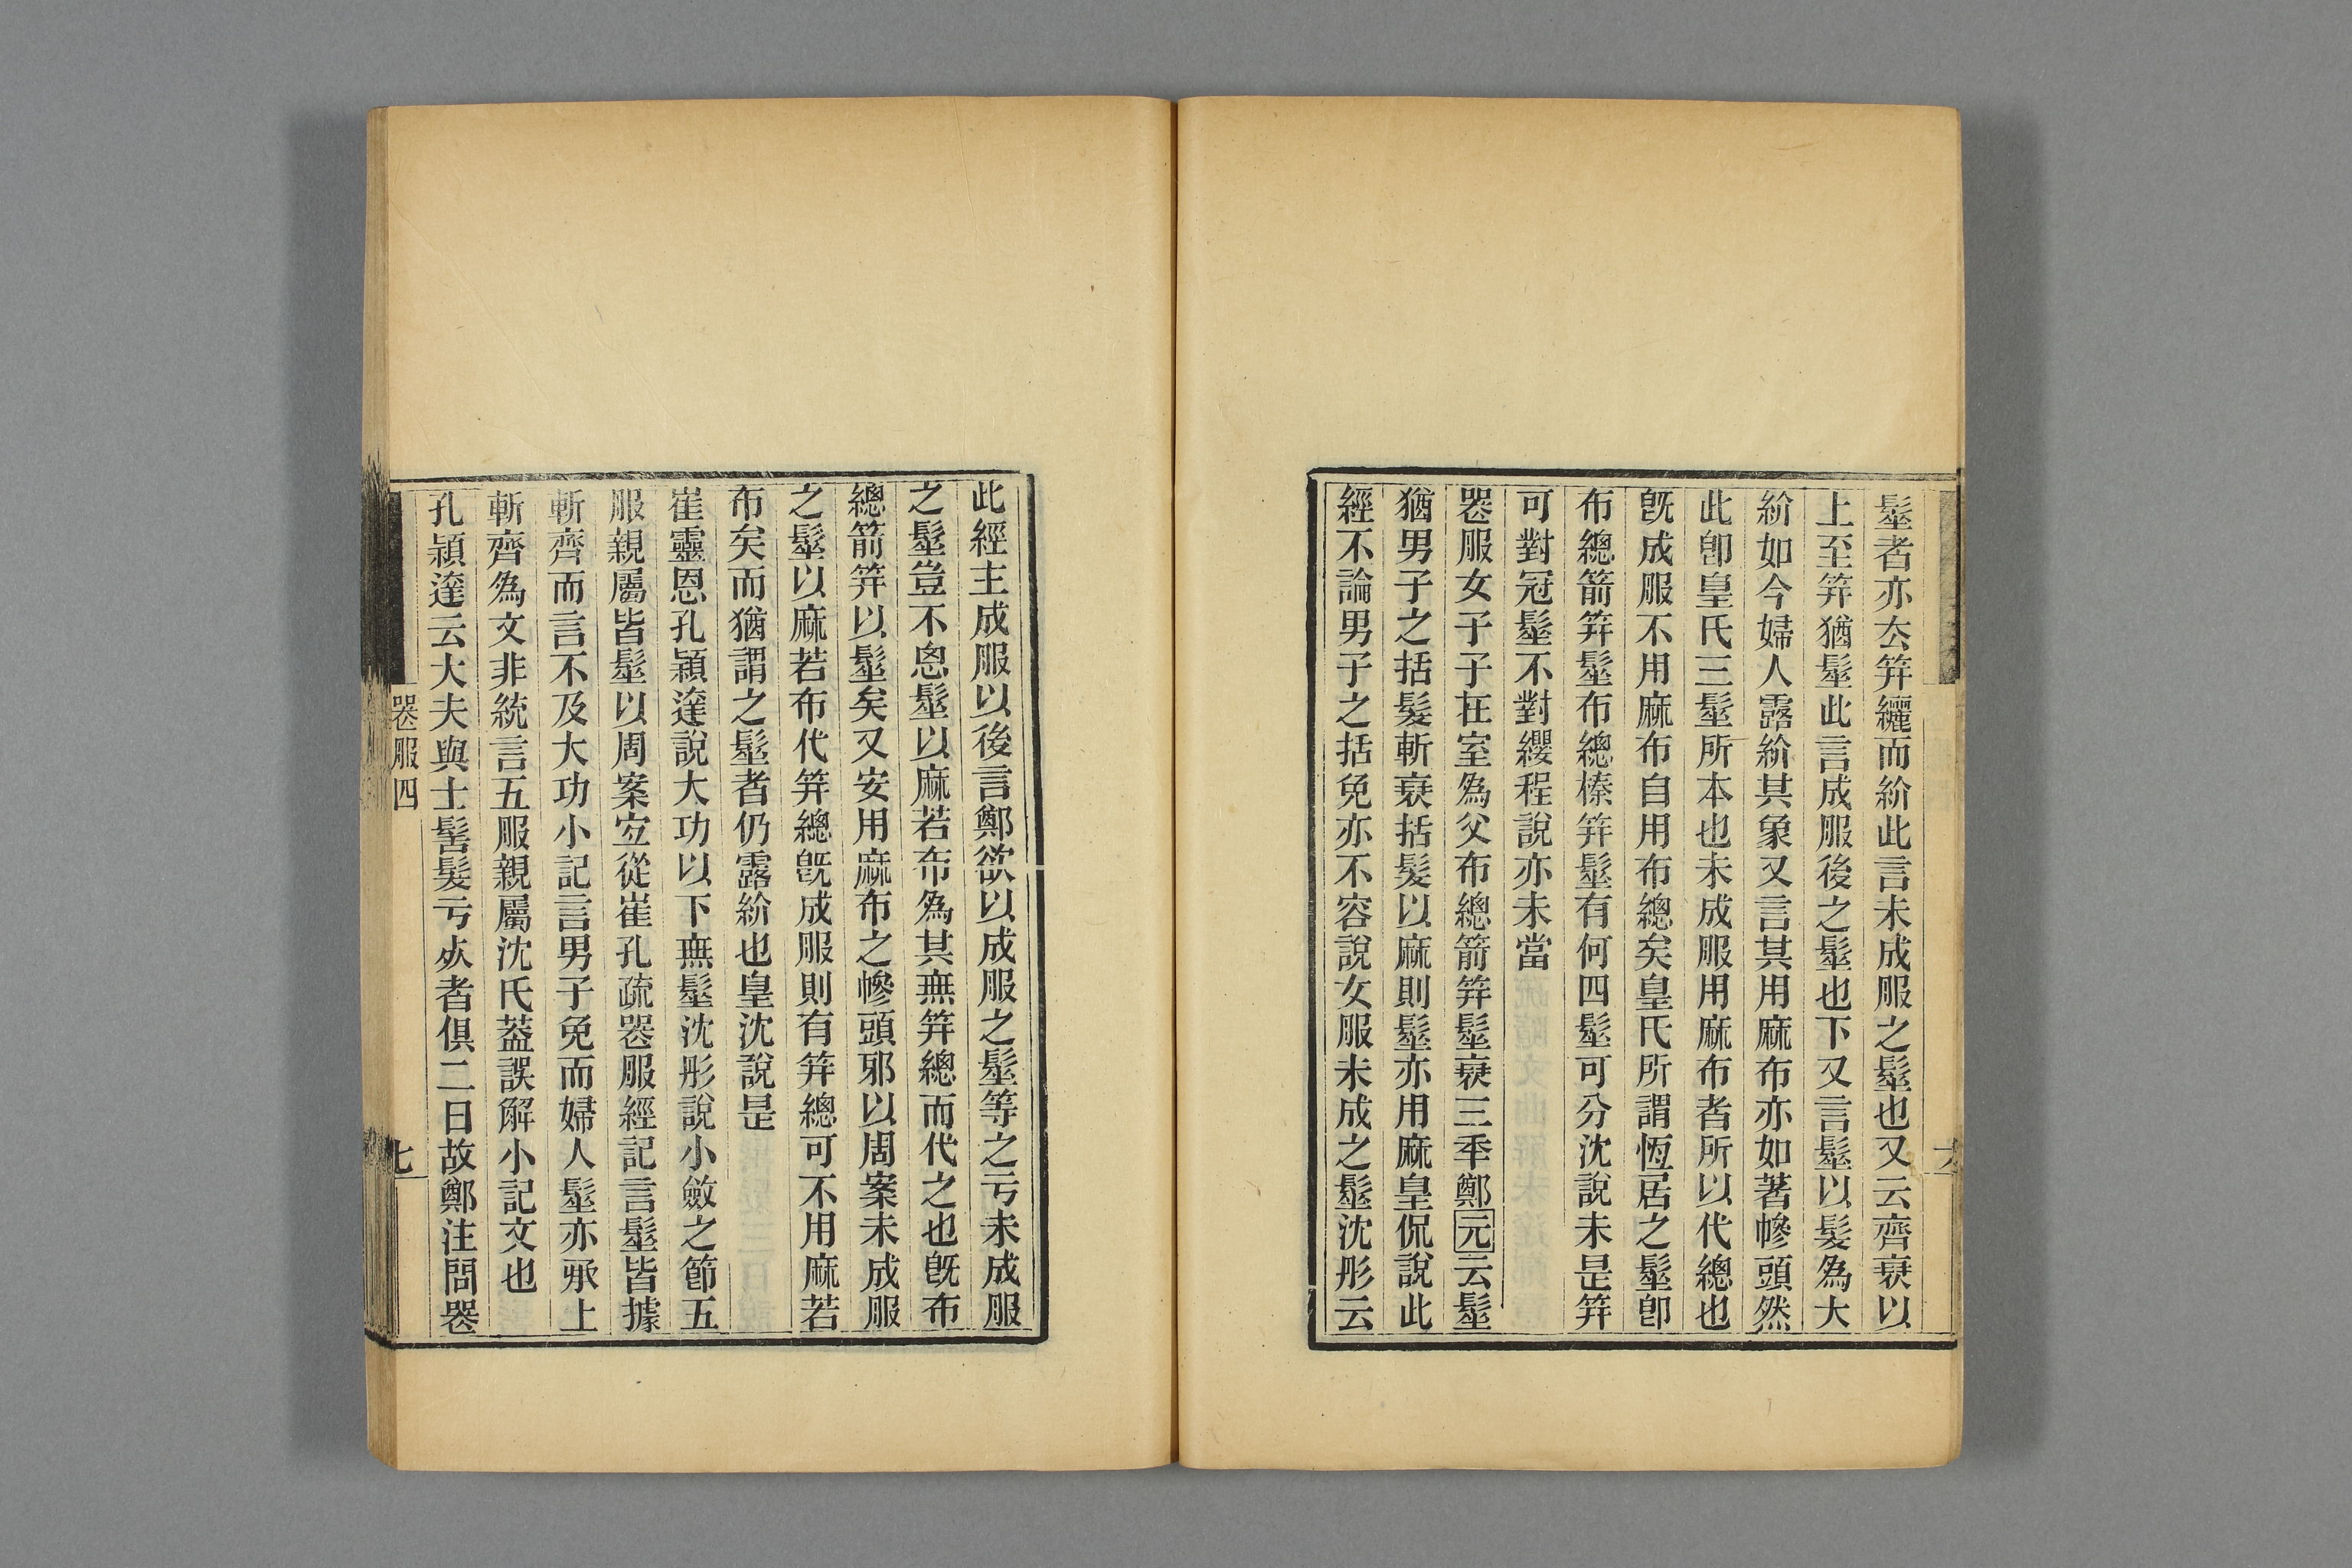 髽者亦厺笄纚而紒此言未成服之髽也又云齊衰以
上至笄猶髽此言成服後之髽也下又言髽以髮為大
紒如今婦人露紒其象又言其用麻布亦如著幓頭然
此卽皇氏三髽所本也未成服用麻布者所以代總也
旣成服不用麻布自用布總矣皇氏所謂恆居之髽卽
布總箭笄髽布總榛笄髽有何四髽可分沈說未是笄
可對冠髽不對纓程說亦未當
喪服女子子在室為父布總箭笄髽衰三秊鄭元云髽
猶男子之括髮斬衰括髮以麻則髽亦用麻皇侃說此
經不論男子之括免亦不容說女服未成之髽沈彤云
此經主成服以後言鄭欲以成服之髽等之亏未成服
之髽豈不悤髽以麻若布為其無笄總而代之也旣布
總箭笄以髽矣又安用麻布之幓頭邪以周案未成服
之髽以麻若布代笄總旣成服則有笄總可不用麻若
布矣而猶謂之髽者仍露紒也皇沈說是
崔靈恩孔穎達說大功以下無髽沈彤說小斂之節五
服親屬皆髽以周案宜從崔孔疏喪服經記言髽皆據
斬齊而言不及大功小記言男子免而婦人髽亦承上
斬齊為文非統言五服親屬沈氏葢誤解小記文也
孔穎達云大夫與士髺髮亏𣦸者俱二日故鄭注問喪
喪服四
七